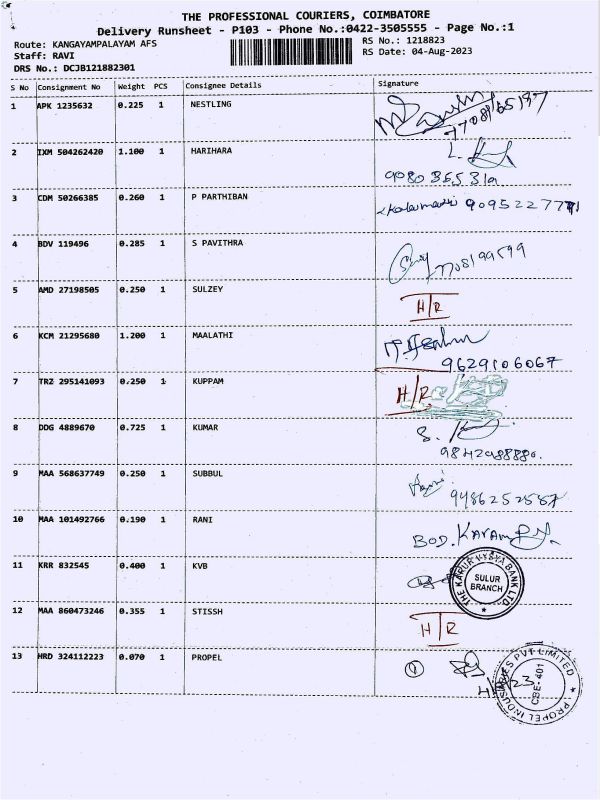 THE PROFESSIONAL COURIERS, COIMBATORE
Delivery Runsheet - P103 - Phone No.:0422-3505555 - Page No.:1
Route: KANGAYAMPALAYAM AFS
RS No.: 1218823
Staff: RAVI
RS Date: 04-Aug-2023
DRS No.: DCJB121882301
S No Consignment No Weight PCS Consignee Details Signature
1 APK 1235632 0.225 1 NESTLING
2 IXM 504262420 1.100 1 HARIHARA
3 CDM 50266385 0.260 1 P PARTHIBAN
4 BDV 119496 0.285 1 S PAVITHRA
7708199599
5 AMD 27198505 0.250 1 SULZEY
H/R
6 KCM 21295680 1.200 1 MAALATHI
9629106067
7 TRZ 295141093 0.250 1 KUPPAM
H/R
8 DDG 4889670 0.725 1 KUMAR
S.
9842988880.
9 MAA 568637749 0.250 1 SUBBUL
9486252587
10 MAA 101492766 0.190 1 RANI
BOD.
11 KRR 832545 0.400 1 KVB
THE KARUR VYSYA BANK LTD.
SULUR
BRANCH
12 MAA 860473246 0.355 1 STISSH
H/R
13 HRD 324112223 0.070 1 PROPEL
1
PROPEL INDUSTRIES PVT LIMITED
CBE-401